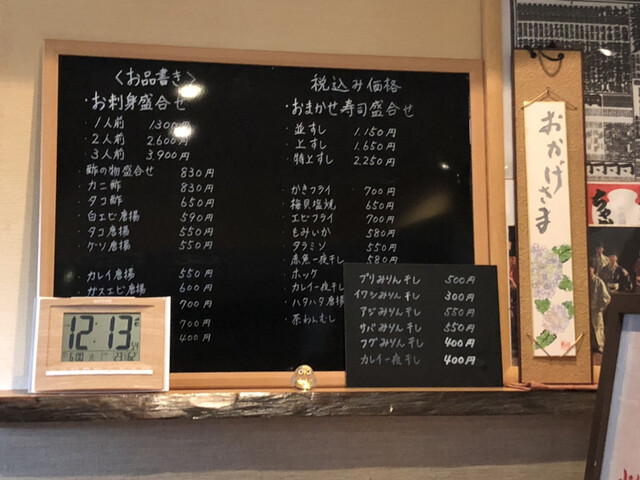 〈お品書き〉
・お刺身盛合せ
・1人前 1300円
・2人前 2,600円
・3人前 3,900円
酢の物盛合せ 830円
・カニ酢 830円
・タコ酢 650円
・白エビ唐揚 590円
・タコ唐揚 550円
・ゲソ唐揚 550円
・カレイ唐揚 550円
・ガスエビ唐揚 600円
700円
700円
400円
税込み価格
・おまかせ寿司盛合せ
・並すし 1.150円
・上すし 1.650円
・特上すし 2.250円
・かきフライ 700円
・梅貝塩焼 650円
・エビフライ 700円
・もみいか 580円
・タラミソ 550円
・赤魚一夜干し 580円
・ホッケ
・カレイ一夜干し
・ハタハタ唐揚
・茶わんむし
・ブリみりん干し 500円
・イワシみりん干し 300円
・アジみりん干し 550円
・サバみりん干し 550円
・フグみりん干し 400円
・カレイ一夜干し 400円
12:13
おかげさま